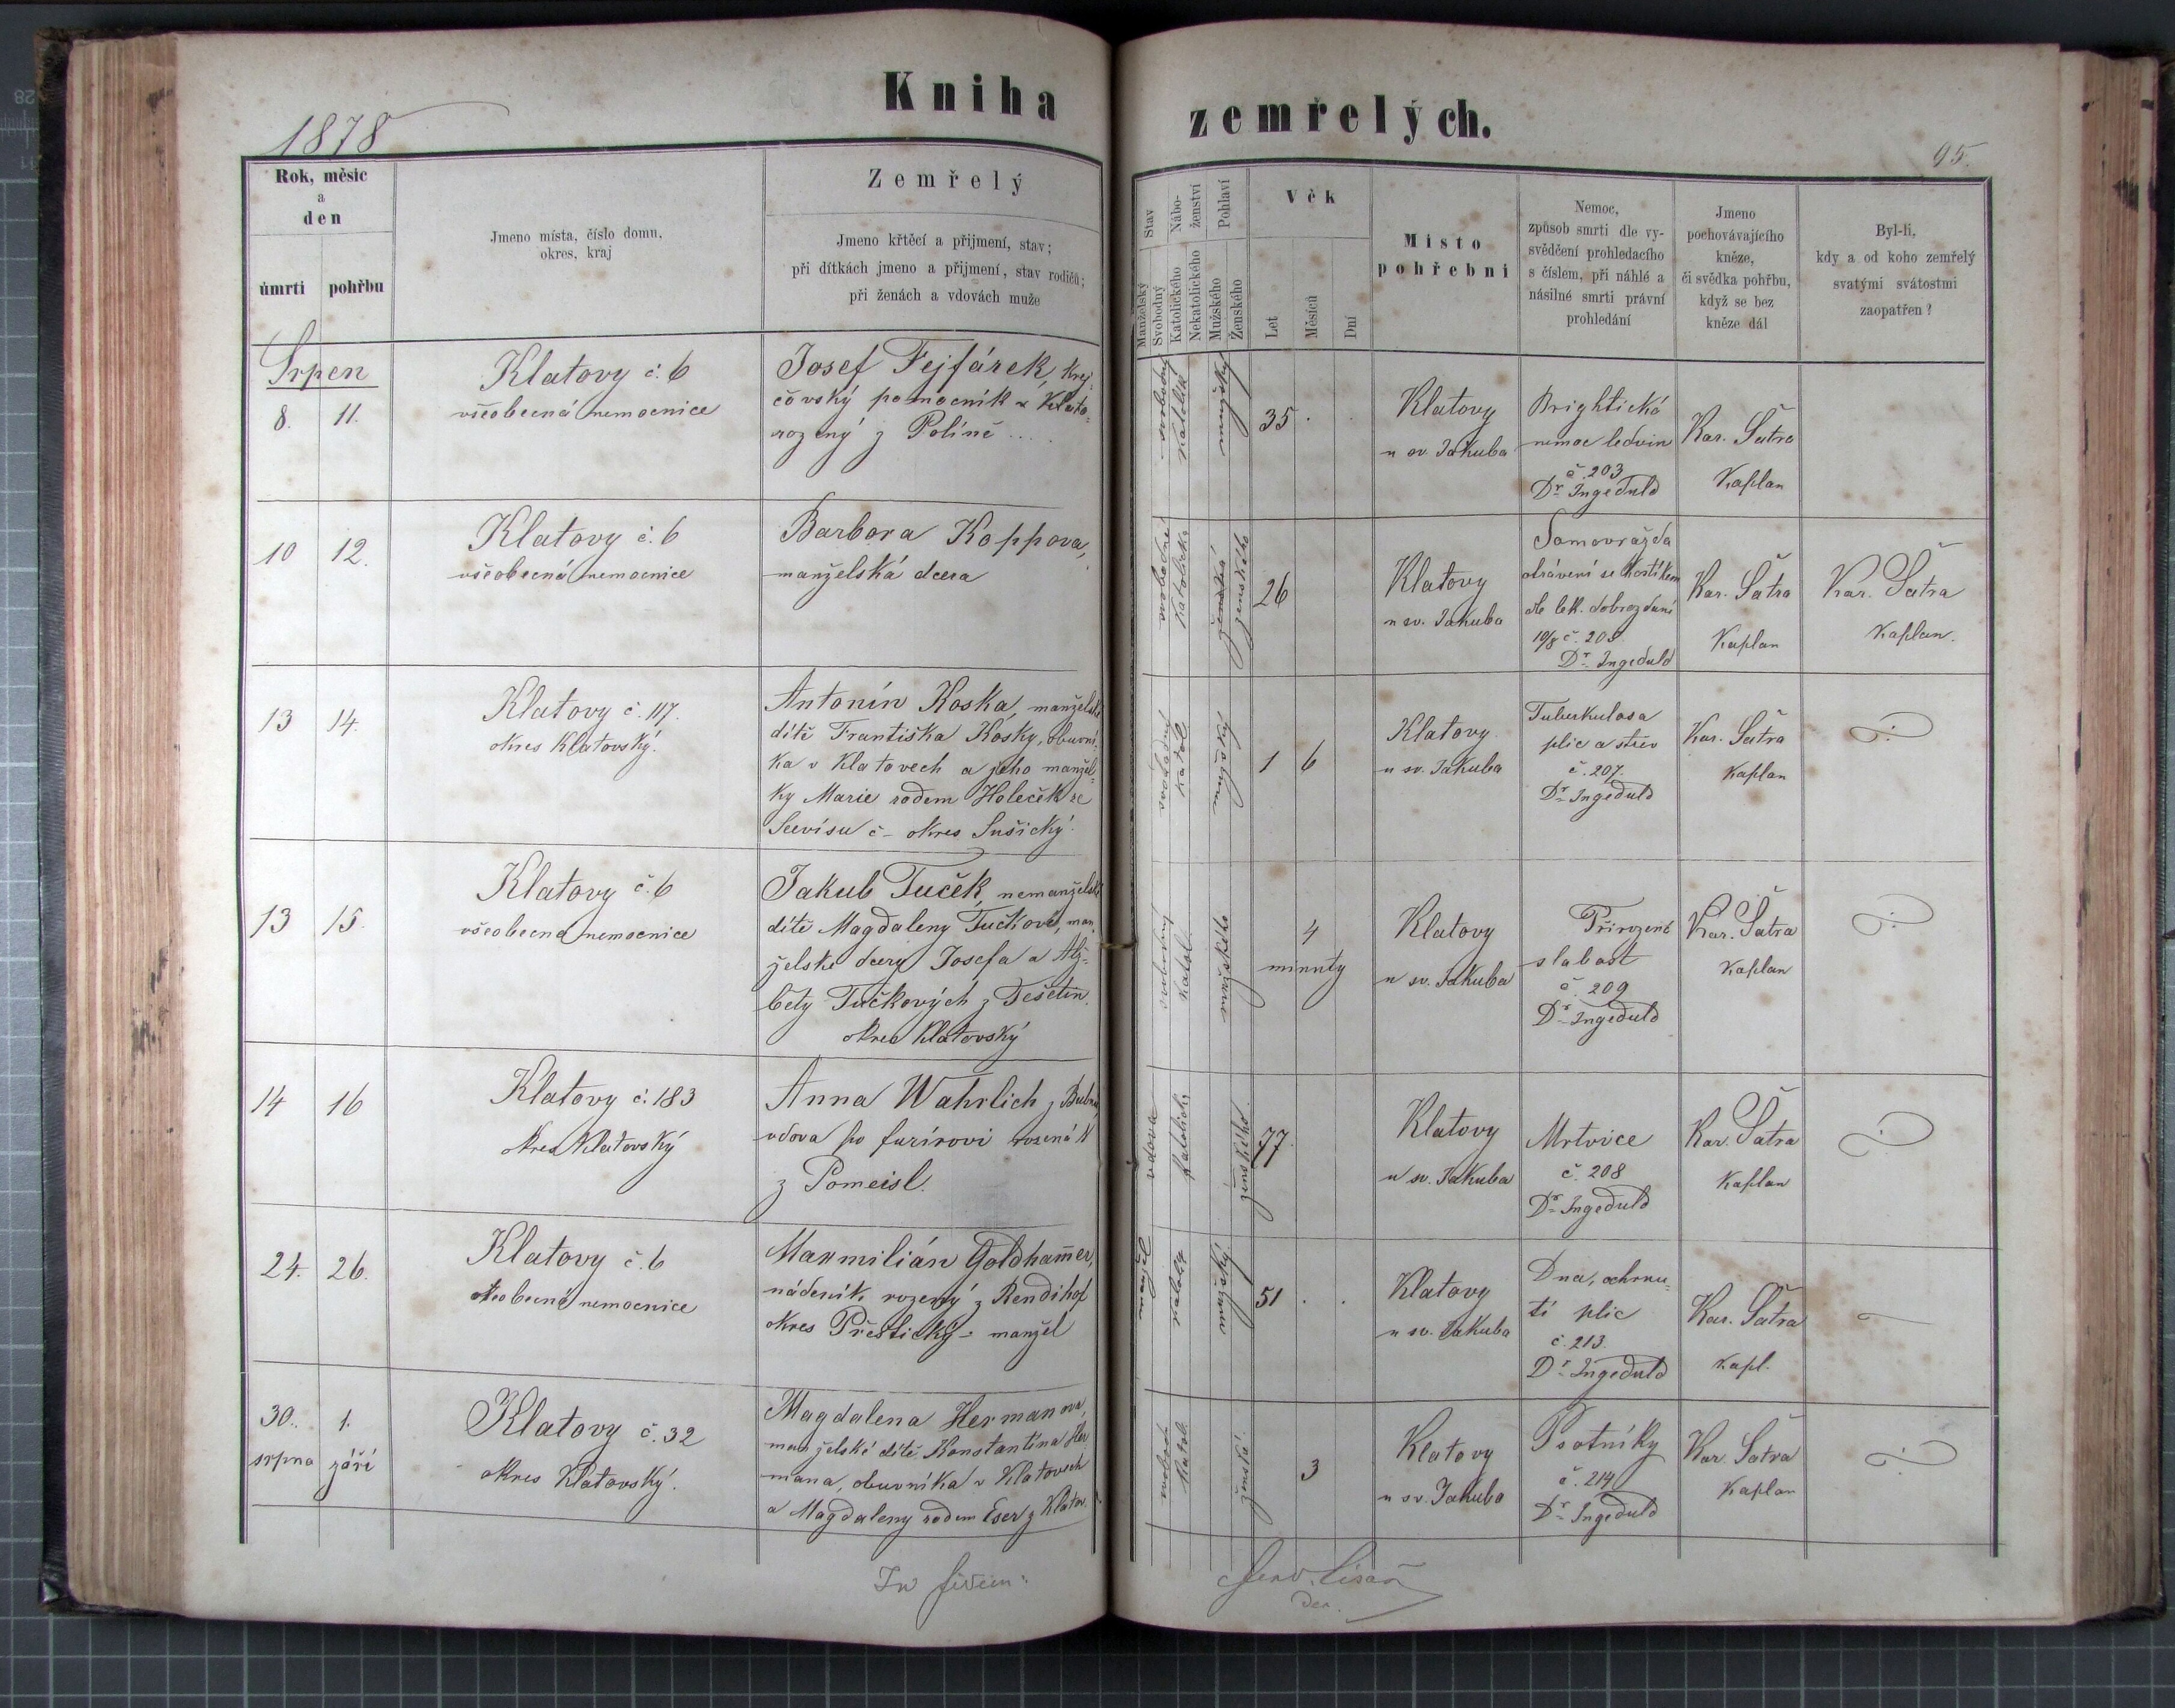 Kniha zemřelých.
1878
95.
Rok, měsíc
a
den
úmrtí pohřbu
Jmeno místa, číslo domu,
okres, kraj
Zemřelý
Jmeno křtěcí a přijmení, stav;
při dítkách jmeno a přijmení, stav rodičů;
při ženách a vdovách muže
Stav
Manželský
Svobodný
Nábo-
ženství
Katolického
Nekatolického
Pohlaví
Mužského
Ženského
Věk
Let
Měsíců
Dní
Místo
pohřební
Nemoc,
způsob smrti dle vy-
svědčení prohledacího
s číslem, při náhlé a
násilné smrti právní
prohledání
Jmeno
pochovávajícího
kněze,
či svědka pohřbu,
když se bez
kněze dál
Byl-li,
kdy a od koho zemřelý
svatými svátostmi
zaopatřen?
Srpen
8. 11.
Klatovy č. 6
všeobecná nemocnice
Josef Fejfárek, krej-
čovský pomocník v Klato-
rozený z Políně
svobodný
katolík
mužský
35
Klatovy
u sv. Jakuba
Brightická
nemoc ledvin
č. 203
Dr. Ingeduld
Kar. Šatra
Kaplan
10 12.
Klatovy č. 6
všeobecná nemocnice
Barbora Koppova,
manželská dcera
svobodná
katolická
ženského
26
Klatovy
u sv. Jakuba
Samovražda
otrávení se fosfórem
dle lék. dobrozdání
10/8 č. 205
Dr. Ingeduld
Kar. Šatra
Kaplan
Kar. Šatra
Kaplan.
13 14.
Klatovy č. 117.
okres Klatovský.
Antonín Koska, manželské
dítě Františka Kosky, obuvní-
ka v Klatovech a jeho manžel-
ky Marie rodem Holeček ze
č – okres Sušický.
svobodný
katol.
mužský
1 6
Klatovy
u sv. Jakuba
Tuberkulosa
plic a střev
č. 207.
Dr. Ingeduld
Kar. Šatra
Kaplan
13 15.
Klatovy č. 6
všeobecná nemocnice
Jakub Tuček, nemanželské
dítě Magdaleny Tučkové, man-
želské dcery Josefa a Alž-
běty Tučkových z Dešetin
okres Klatovský
svobodný
katol.
mužského
4
minuty
Klatovy
u sv. Jakuba
Přirozená
slabost
č. 209
Dr. Ingeduld
Kar. Šatra
Kaplan
14 16
Klatovy č. 183
okres Klatovský
Anna Wahrlich,
vdova po furírovi rozená
z Pomeisl.
vdova
katolický
ženského
77.
Klatovy
u sv. Jakuba
Mrtvice
č. 208
Dr. Ingeduld
Kar. Šatra
Kaplan
24. 26.
Klatovy č. 6
všeobecná nemocnice
Maxmilián Goldham̄er,
nádeník rozený z Rendihof
okres Přeštický – manžel
katolík
mužský
51
Klatovy
u sv. Jakuba
Dna, ochrnu-
tí plic
č. 213.
Dr. Ingeduld
Kar. Šatra
Kapl.
30. 1.
srpna září
Klatovy č. 32
okres Klatovský.
Magdalena Hermanova,
manželské dítě Konstantína Her-
mana, obuvníka v Klatovech
a Magdaleny rodem Eser z Klatov.
svobod.
katol.
ženská
3
Klatovy
u sv. Jakuba
Psotníky
č. 214
Dr. Ingeduld
Kar. Šatra
Kaplan